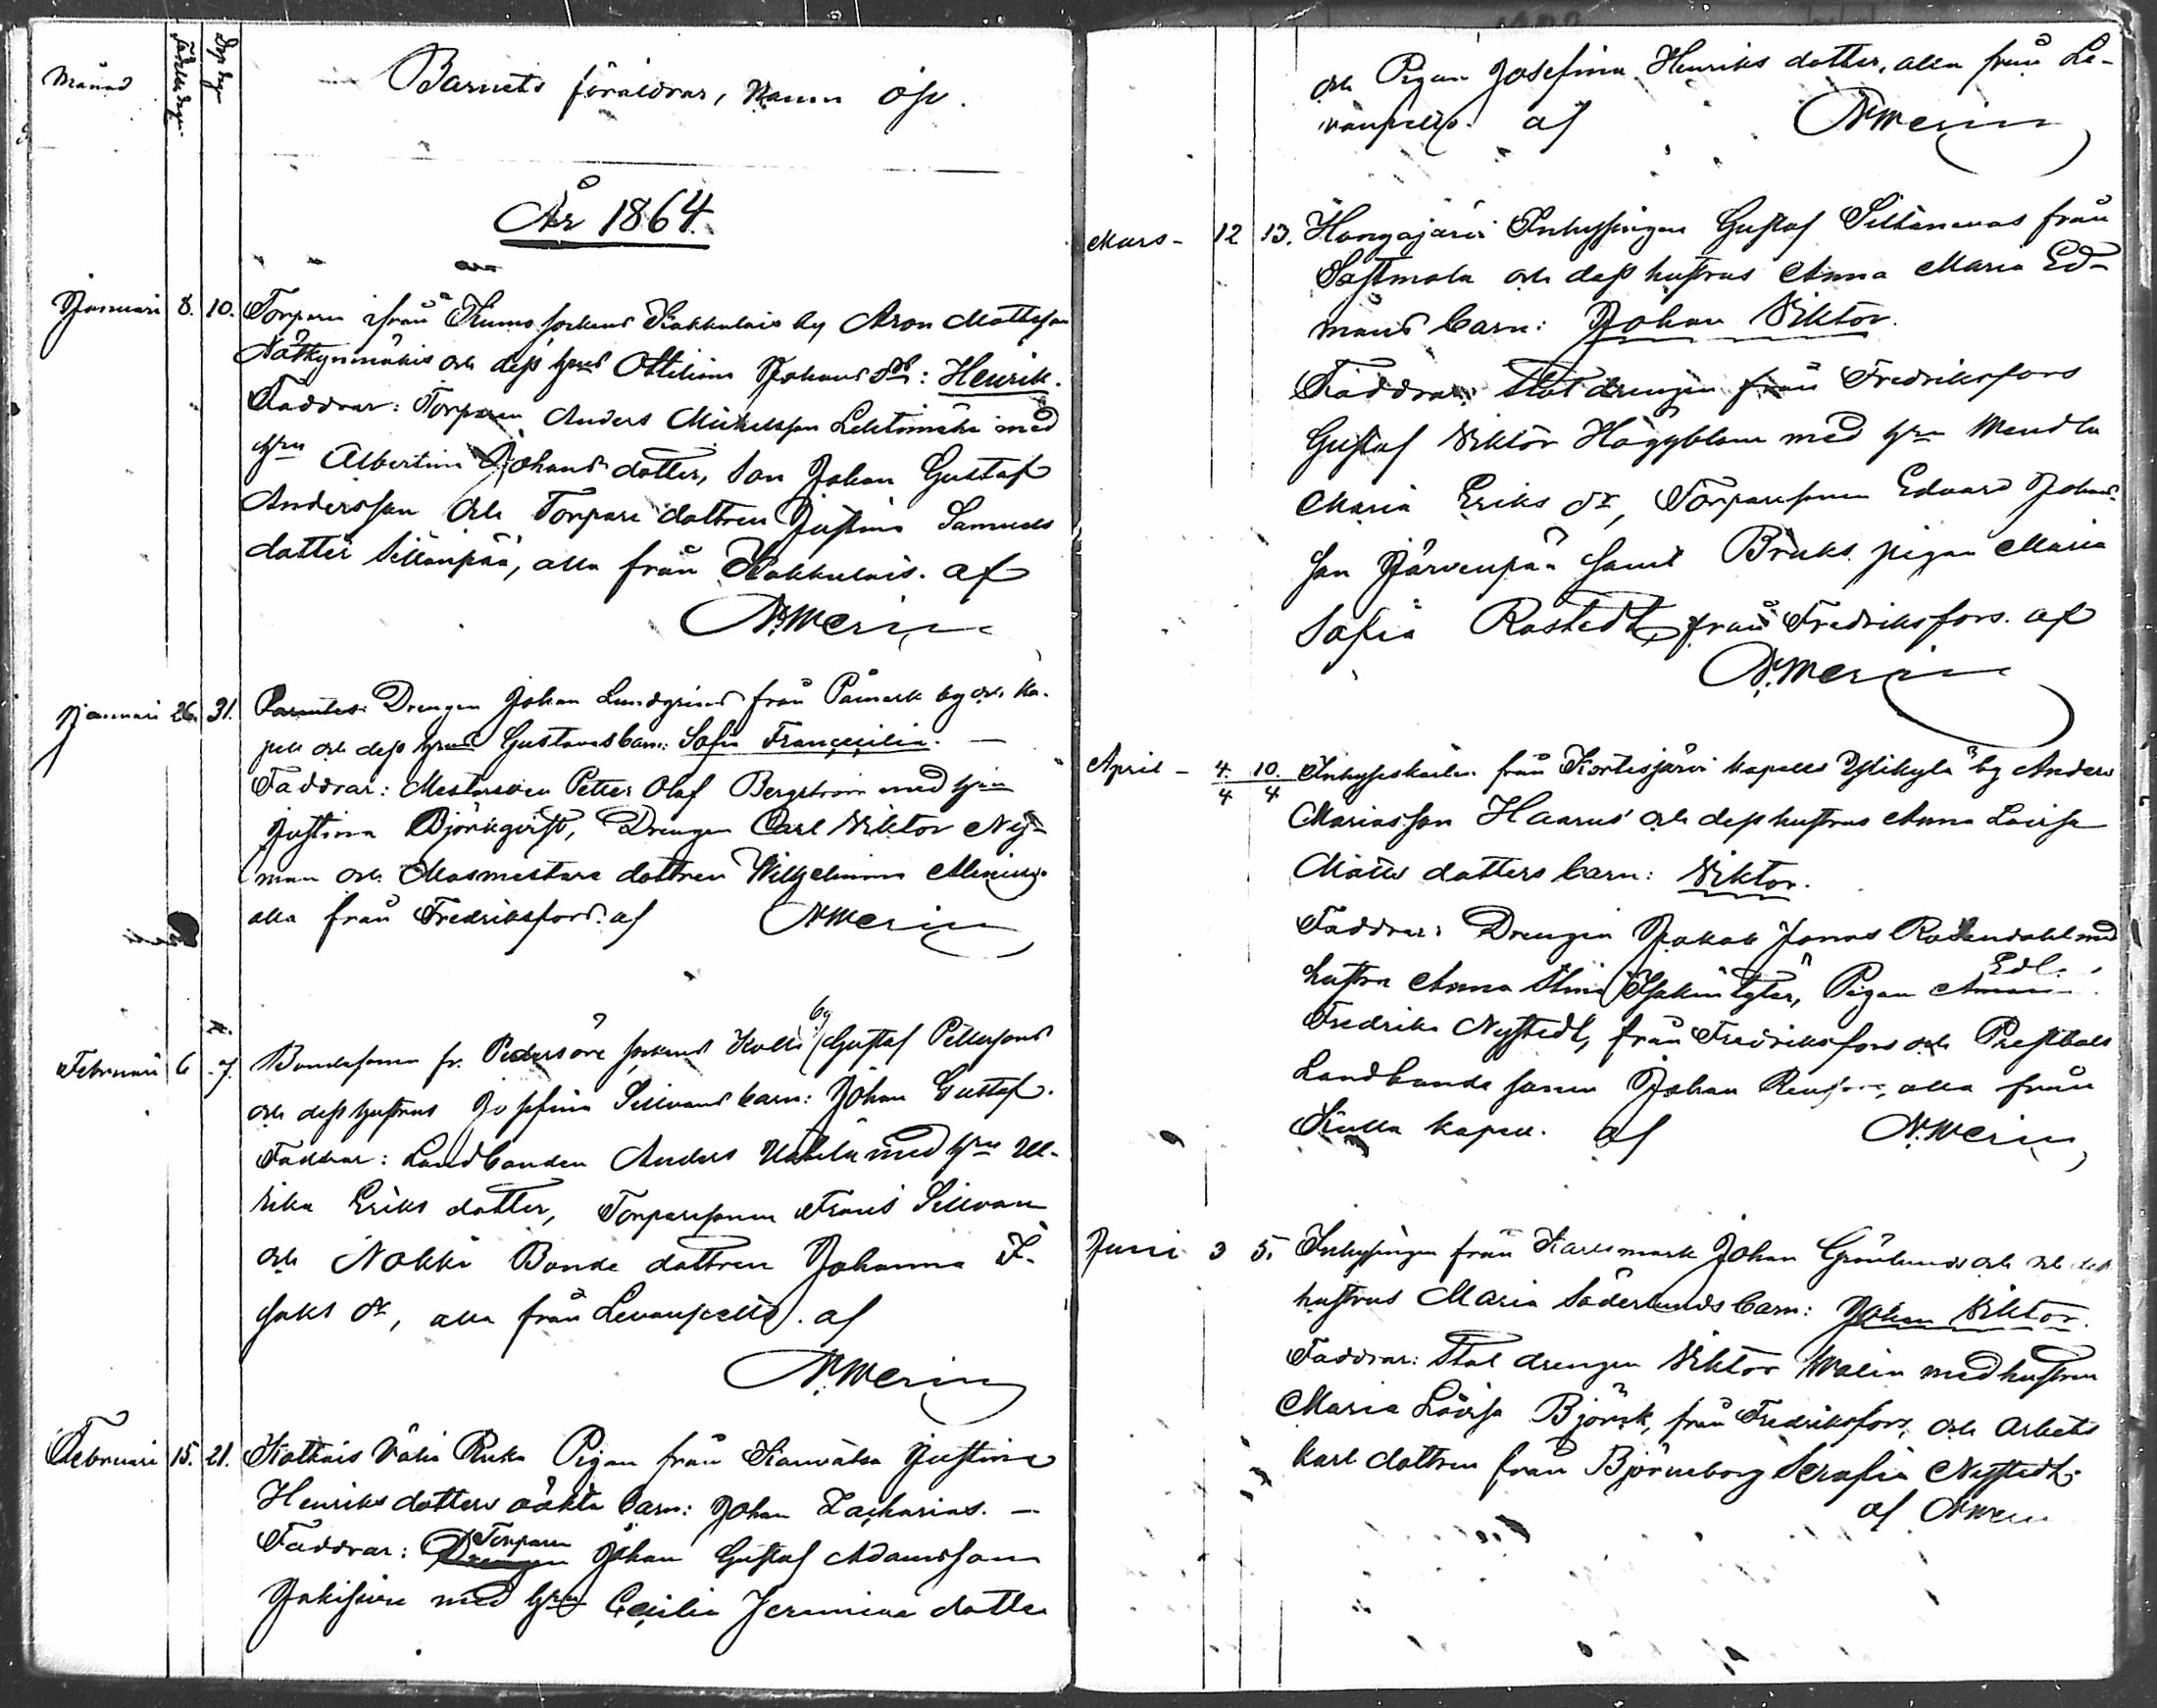 Månad Födelse dagen Dop dagen Barnets föräldrar, Namn osv.
År 1864.
Januari 8. 10. Torparen ifrån Kumo sockens Kakkulais by Aron Mattsson
och dess hus Ottiliana Johans dr: Henrik.
Faddrar: Torparen Anders Michelsson Lehtimäki med
hru Albertina Johans dotter, Son Johan Gustaf
Andersson och Torpare dottren Justina Samuels
dotter Sillanpää, alla från Kakkulais. af
N. Merin
Januari 26. 31. Drengen Johan Lundgrens från Påmark by och Ka-
pell och dess hrus Gustavas barn: Sofia Francecilia. —
Faddrar: Mestersven Petter Olof Bergström med hru
Justina Björkqvist, Drengen Carl Viktor Ny-
man och Masmestare dottren Wilhelmina
alla från Fredriksfors. af N. Merin
Februari 6 7. Bondesonen fr. Pedersöre sockens Kolli by Gustaf Pettersons
och dess hustrus Josefina Sillvans barn: Johan Gustaf.
Faddrar: Landbonden Anders med hru Ul-
rika Eriks dotter, Torparesonen Frans Sillvan
och Nokki Bonde dottren Johanna I-
saks dr, alla från Levanpelto. af
N. Merin
Februari 15. 21. Pigan från Kanvatsa Justina
Henriks dotters oäkta barn: Johan Zacharias. —
Faddrar: Drengen Torparen Johan Gustaf Adamsson
med hru Cecilia Jeremiae dotter
och Pigan Josefina Henriks dotter, alla från Le-
vanpelto. af N. Merin
Mars - 12 13. Hongajärvi Inhysingen Gustaf från
Sastmola och dess hustrus Anna Maria Ed-
mans barn: Johan Viktor.
Faddrar: Stal drengen från Fredriksfors
Gustaf Viktor Häggblom med hru Wendla
Maria Eriks dr, Torparesonen Edvard Johans-
son Järvenpää samt Bruks pigan Maria
Sofia Rostedt, från Fredriksfors. af
N. Merin
April - 4. 4 10. 4 Inhyseskarlen från Kortesjärvi Kapells Ylikylä by Anders
Mariasson Haarus och dess hustrus Anna Lovisa
Matts dotters barn: Viktor.
Faddrar: Drengen Jakob Jonas Rosendahl med
hustru Anna Stina Isakintytär, Pigan Edl.
Fredrika Nystedt, från Fredriksfors och Prestbols
Landbonde sonen Johan alla från
Kulla kapell. af N. Merin
Juni 3 5. Inhysingen från Karlsmark Johan Grönlunds och och dess
hustrus Maria Söderlunds barn: Johan Viktor.
Faddrar: Stal drengen Viktor Walin med hustrun
Maria Lovisa Björk, från Fredriksfors, och Arbets
karl dottren från Björneborg Serafia Nystedt.
af N. Merin